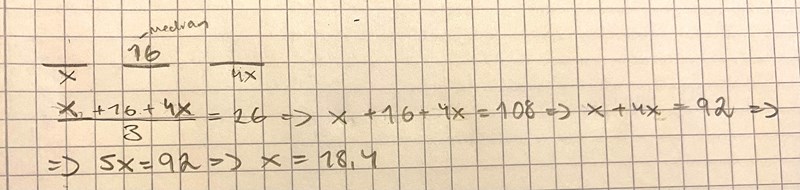 median
16
x 4x
x + 16 + 4x / 3 = 26 => x + 16 + 4x = 108 => x + 4x = 92 =>
=> 5x = 92 => x = 18,4